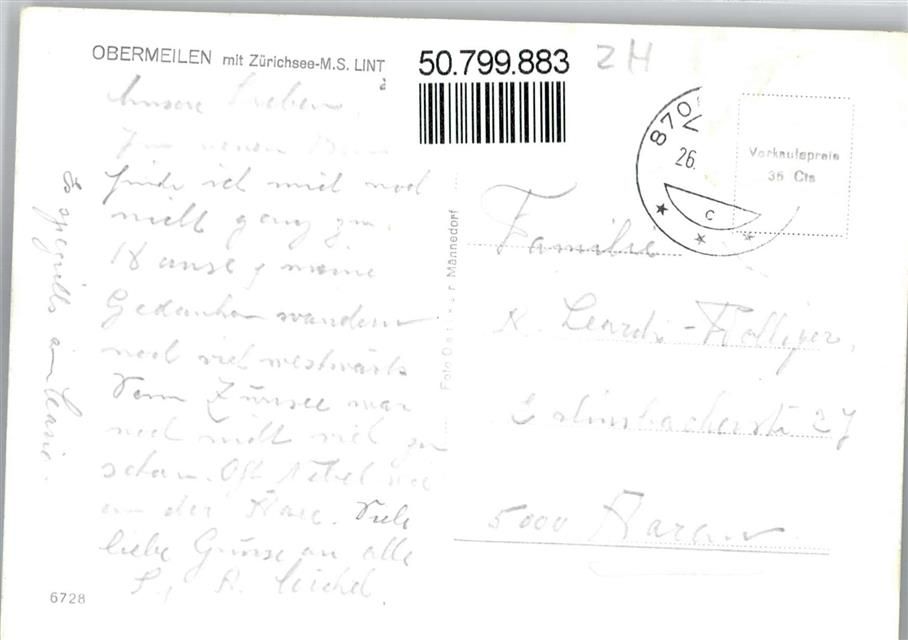 OBERMEILEN mit Zürichsee-M.S. LINT
50.799.883
ZH
870
26.
C
Verkaufspreis
35 Cts
Unsere Lieben,
Im neuen
finde ich mich noch
nicht ganz zu
Hause, meine
Gedanken wandern
noch viel westwärts
Vom Zürisee war
noch nicht viel zu
sehen. Oft Nebel wie
an der Aare. Viele
liebe Grüsse an alle
Foto Männedorf
Familie
K. Leardi-Holliger,
Erlinsbacherstr. 27
5000 Aarau
6728